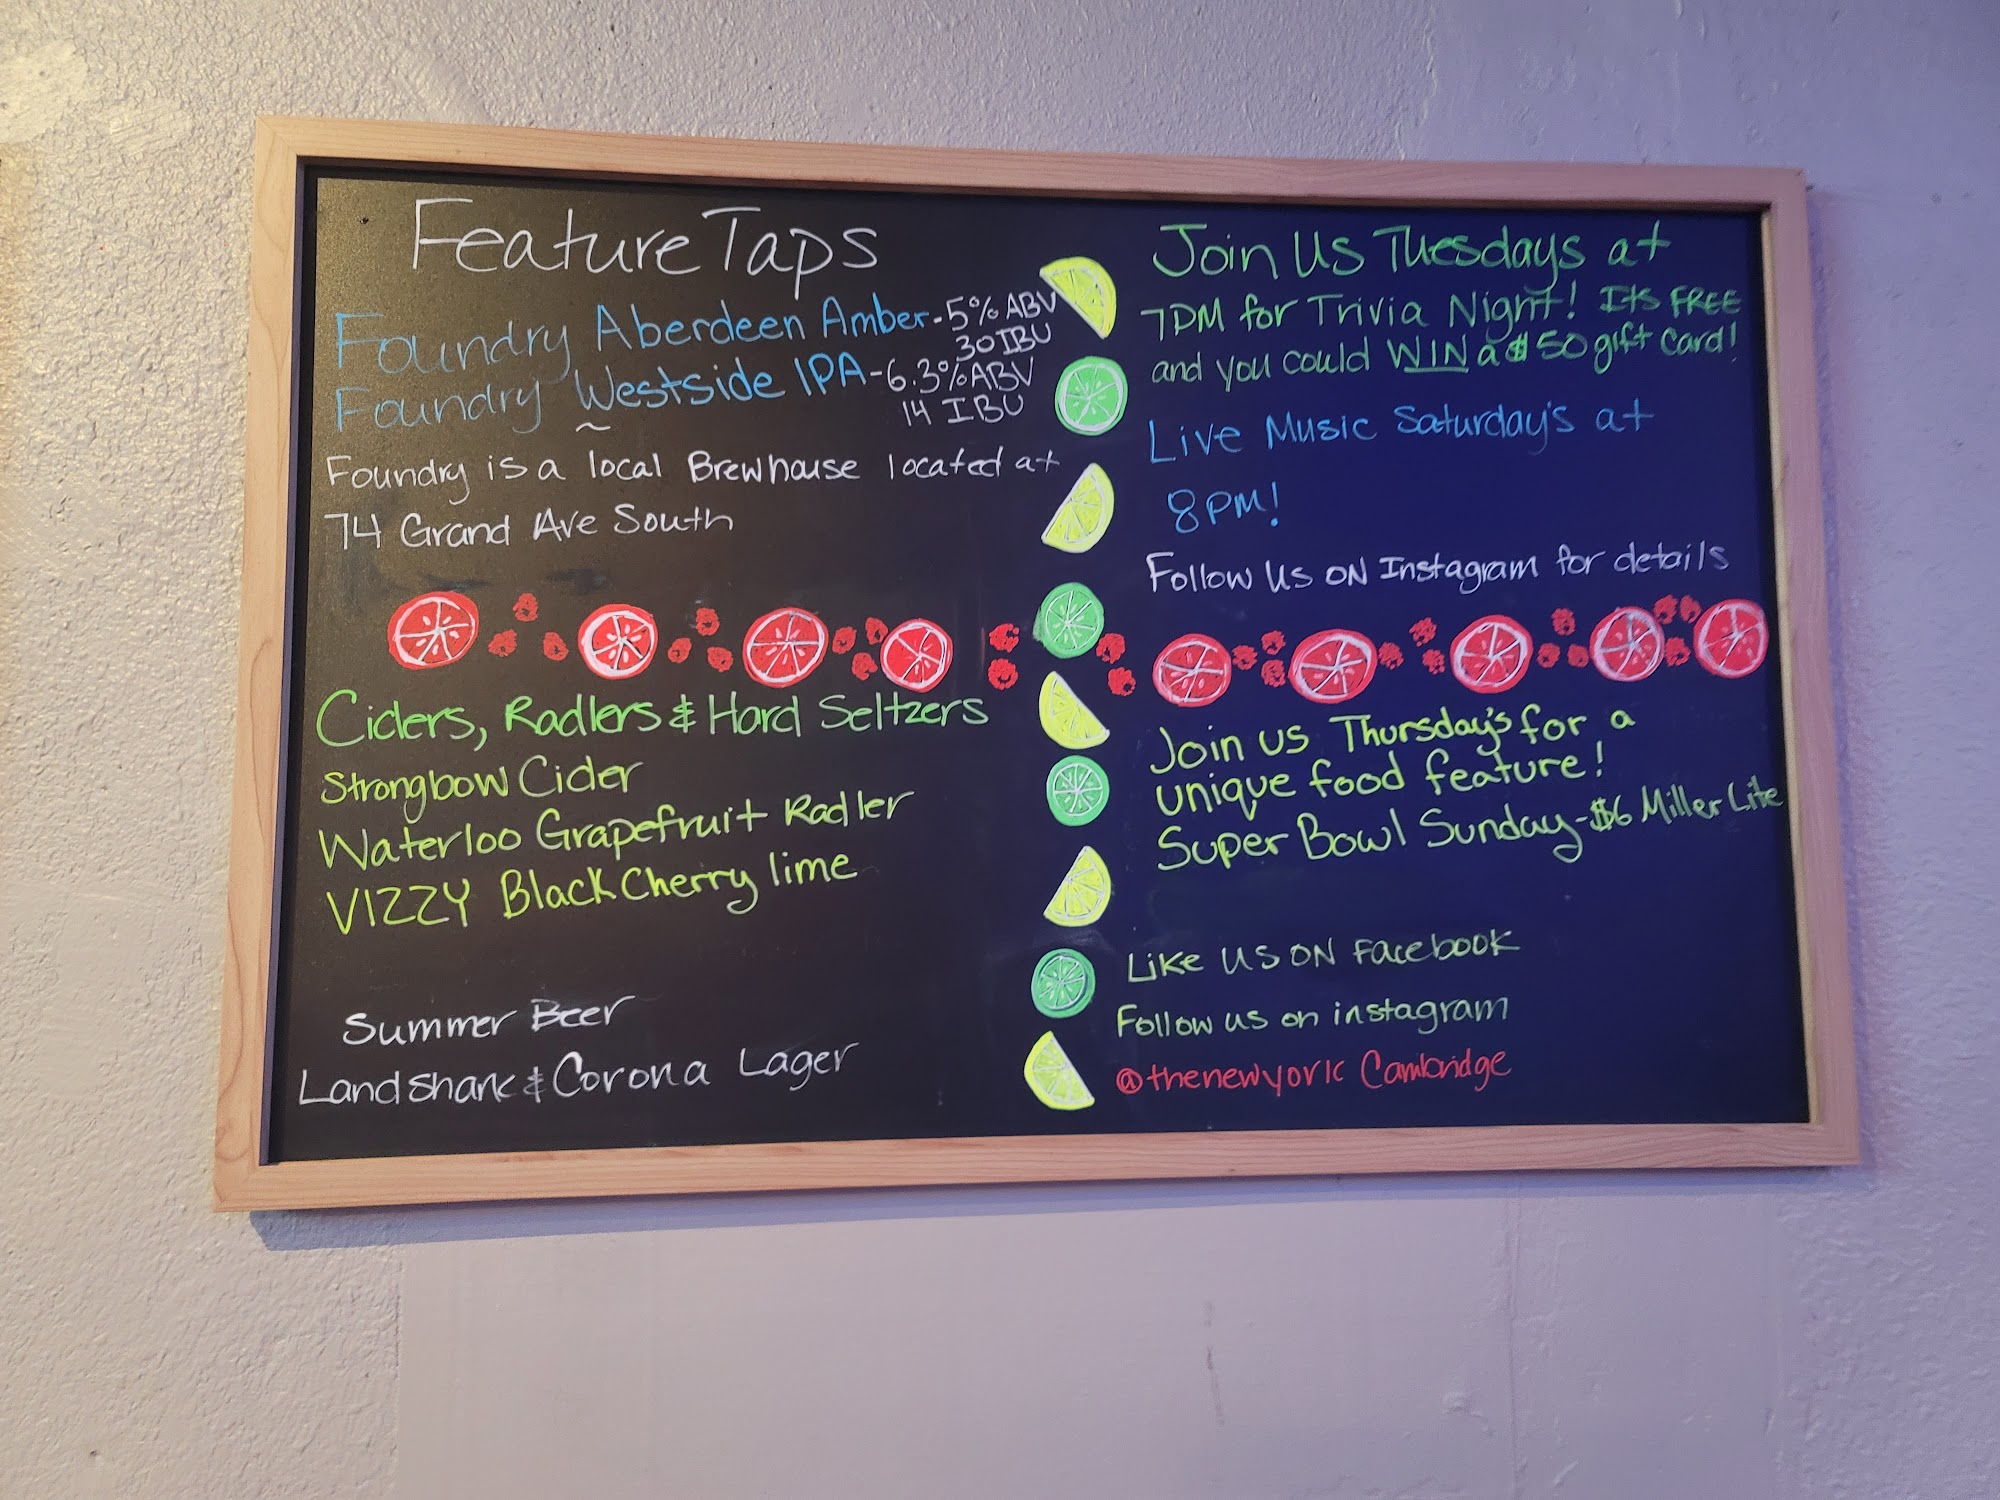 Feature Taps
Foundry Aberdeen Amber-5% ABV
30 IBU
Foundry Westside IPA-6.3% ABV
14 IBU
Foundry is a local Brewhouse located at
74 Grand Ave South
Ciders, Radlers & Hard Seltzers
Strongbow Cider
Waterloo Grapefruit Radler
VIZZY Black Cherry lime
Summer Beer
Landshark & Corona Lager
Join Us Tuesdays at
7PM for Trivia Night! Its FREE
and you could WIN a $50 gift card!
Live Music Saturday's at
8PM!
Follow Us ON Instagram for details
Join us Thursday's for a
unique food feature!
Super Bowl Sunday-$6 Miller Lite
Like us ON Facebook
Follow us on instagram
@thenewyork Cambridge